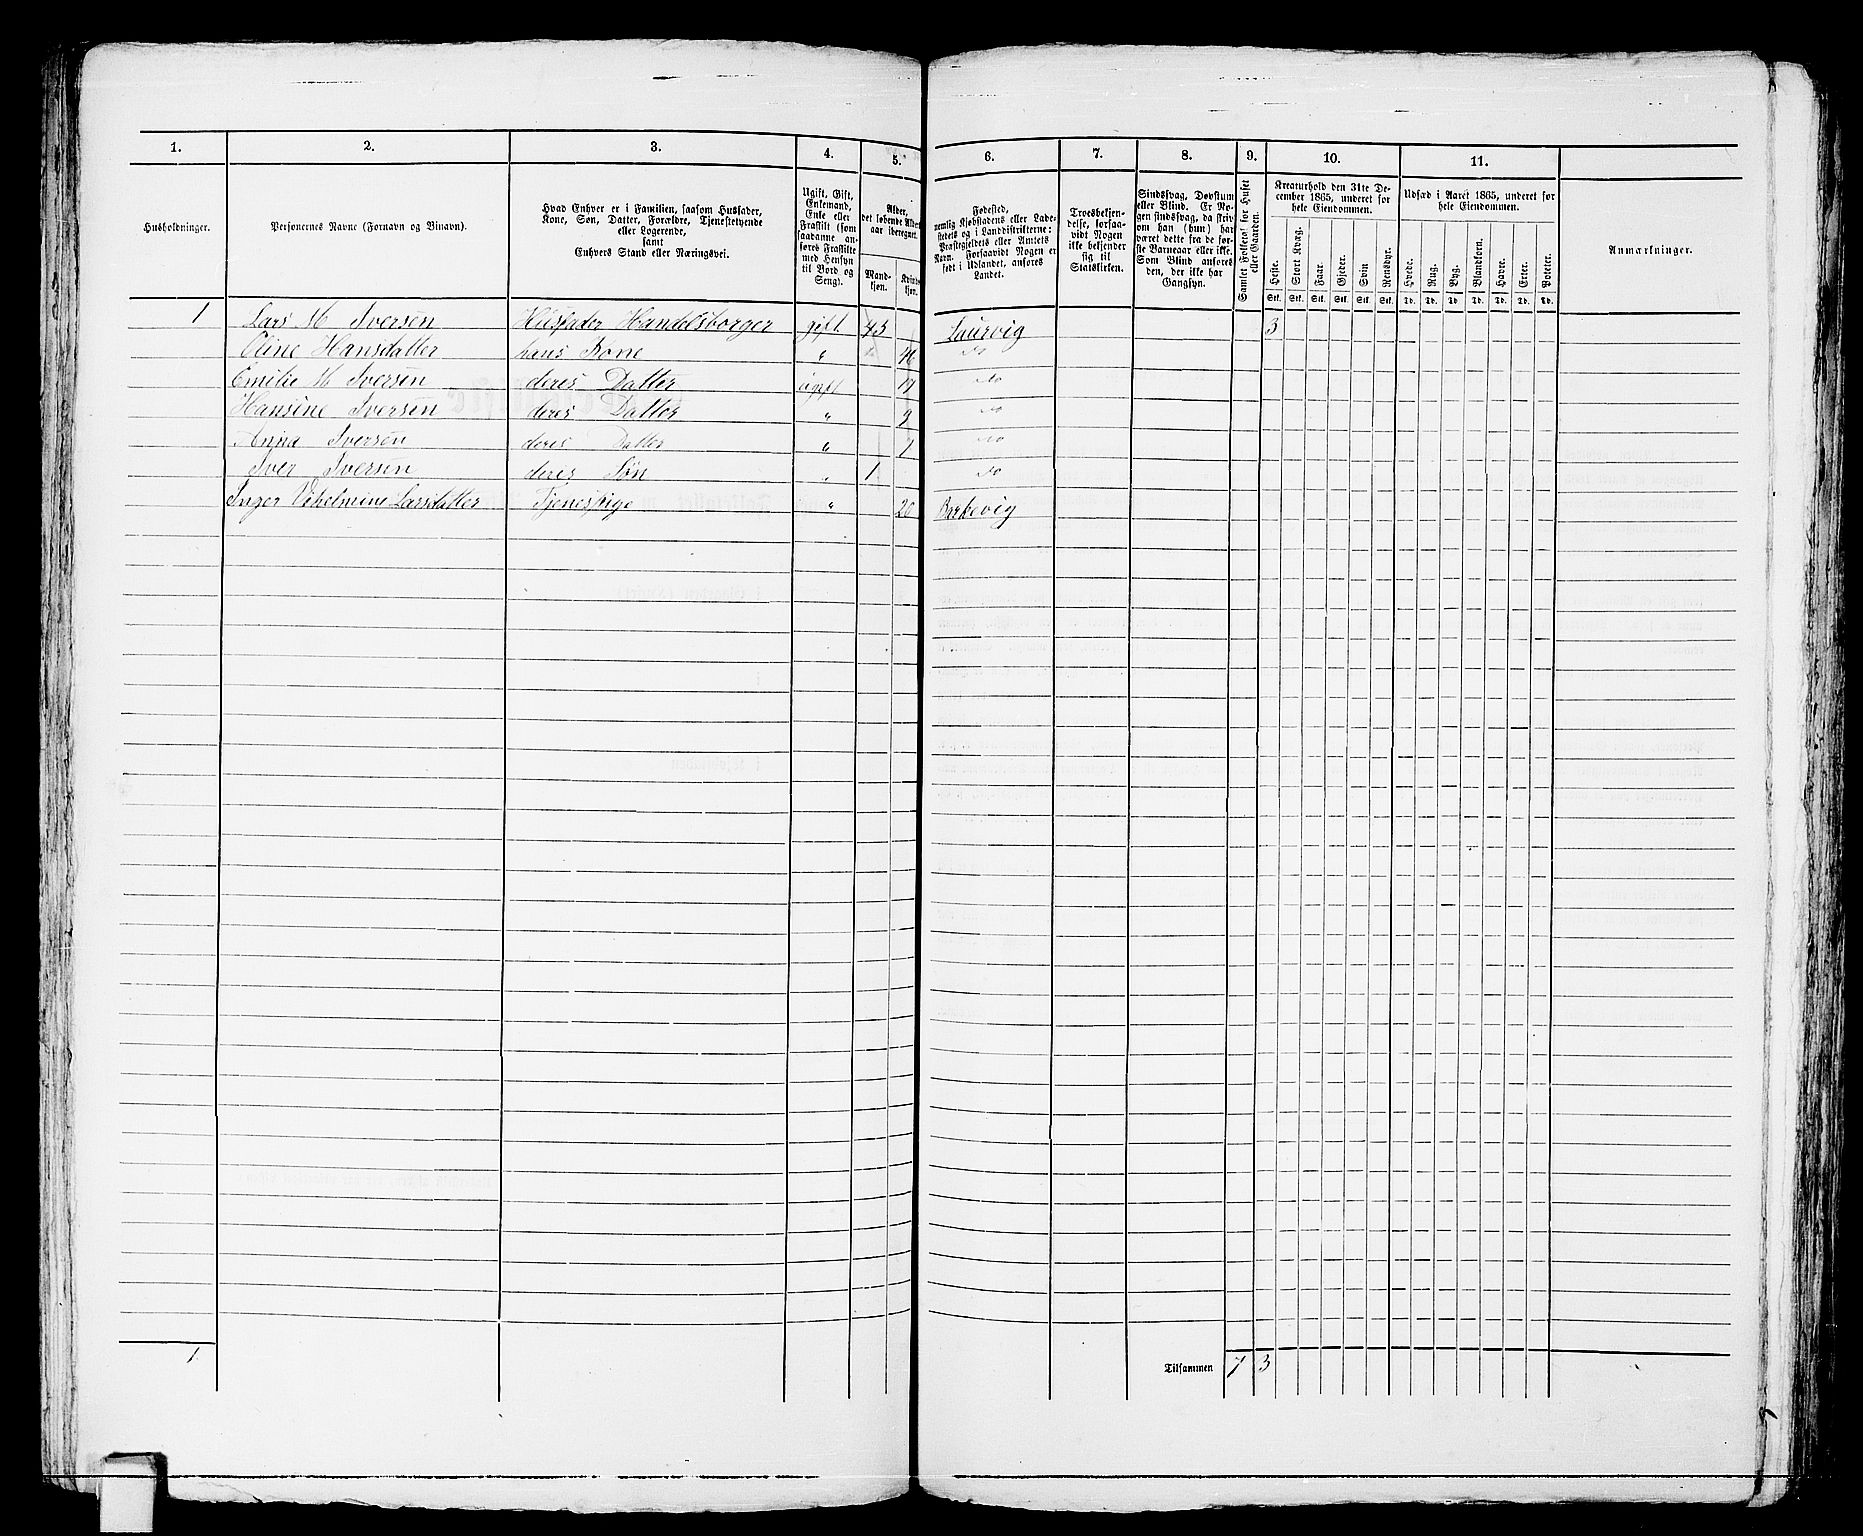 1. 2. 3. 4. 5. 6. 7. 8. 9. 10. 11.
Husholdninger.
Personernes Navne (Fornavn og Binavn).
Hvad Enhver er i Familien, saasom Husfader,
Kone, Søn, Datter, Forældre, Tjenestetyende
eller Logerende,
samt
Enhvers Stand eller Næringsvei.
Ugift, Gift,
Enkemand,
Enke eller
Fraskilt (som
saadanne an-
føres Fraskilte
med Hensyn
til Bord og
Seng).
Alder,
det løbende Alders-
aar iberegnet.
Mand-
kjøn.
Kvinde-
kjøn.
Fødested,
nemlig Kjøbstadens eller Lade-
stedets og i Landdistrikterne:
Præstegjeldets eller Amtets
Navn. Forsaavidt Nogen er
født i Udlandet, anføres
Landet.
Troesbekjen-
delse, forsaa-
vidt Nogen
ikke bekjender
sig til
Statskirken.
Sindssvag, Døvstum
eller Blind. Er No-
gen sindssvag, da skriv
om han (hun) har
været dette fra de før-
ste Barneaar eller ikke.
Som Blind anføres
den, der ikke har
Gangsyn.
Samlet Folketal for Huset
eller Gaarden.
Kreaturhold den 31te De-
cember 1865, underet for
hele Eiendommen.
Heste. Stort Kvæg. Faar. Gjeder. Svin Rensdyr.
Stk. Stk. Stk. Stk. Stk. Stk.
Udsæd i Aaret 1865, underet for
hele Eiendommen.
Hvede. Rug. Byg. Blandkorn. Havre. Erter. Poteter.
Td. Td. Td. Td. Td. Td. Td.
Anmærkninger.
1 Lars M Iversen Husfader Handelsborger gift 45 Laurvig 3
Oline Hansdatter hans Kone " 46 do
Emilie M Iversen deres Datter ugift 17 do
Hansine Iversen deres Datter " 9 do
Anna Iversen deres Datter " 7 do
Iver Iversen deres Søn " 1 do
Inger Vilhelmine Larsdatter Tjenestpige " 20 Barkevig
1 Tilsammen 7 3